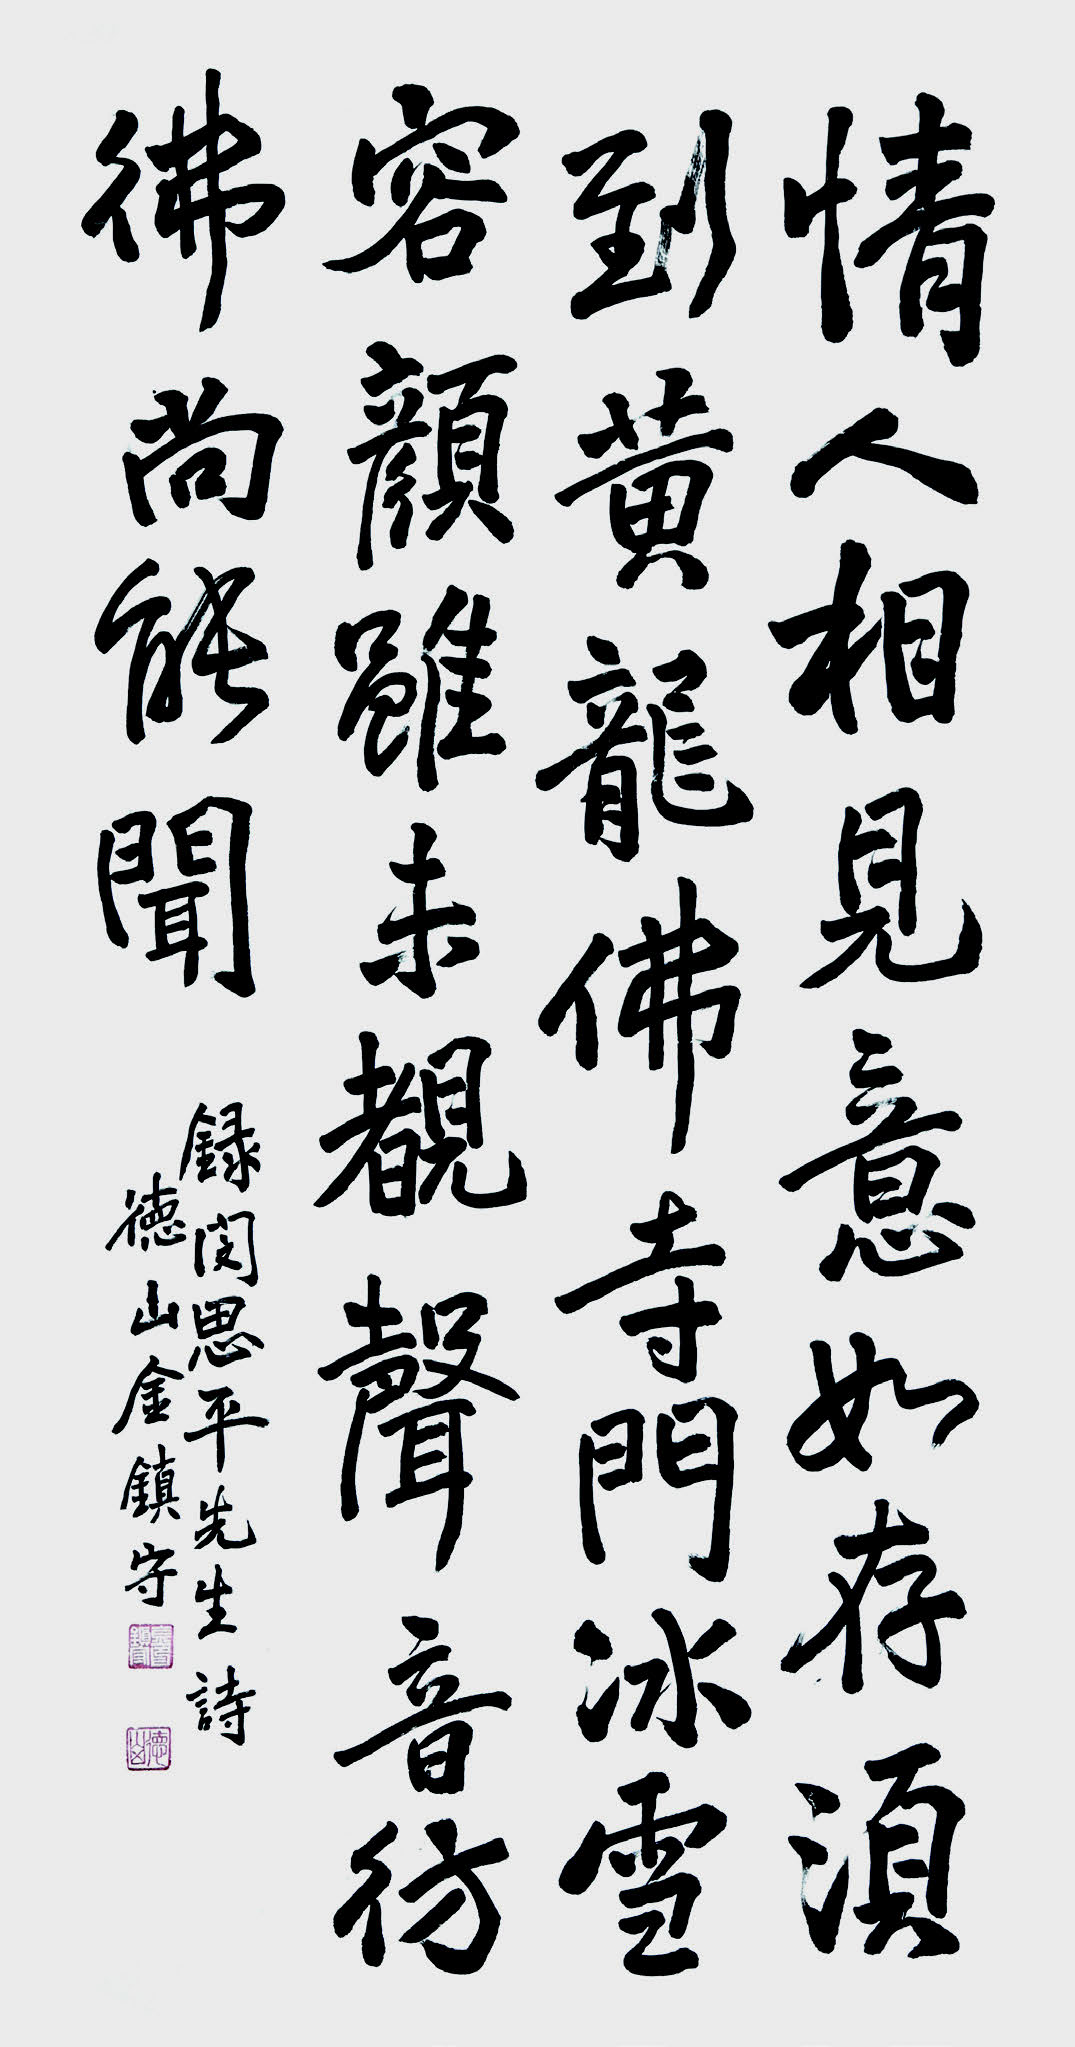 情人相見意如存須
到黄龍佛寺門冰雪
容顏雖未覩聲音彷
彿尚能聞
録閔思平先生詩
德山金鎮守
德山